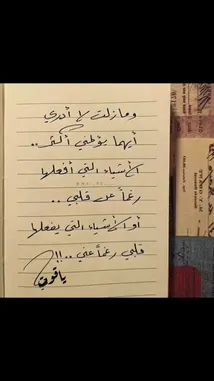 وما زلت لا أدري
أيهما يؤلمني أكثر ..
الأشياء التي أفعلها
رغماً عن قلبي ..
أو الأشياء التي يفعلها
قلبي رغماً عني ..!!
ياقوت